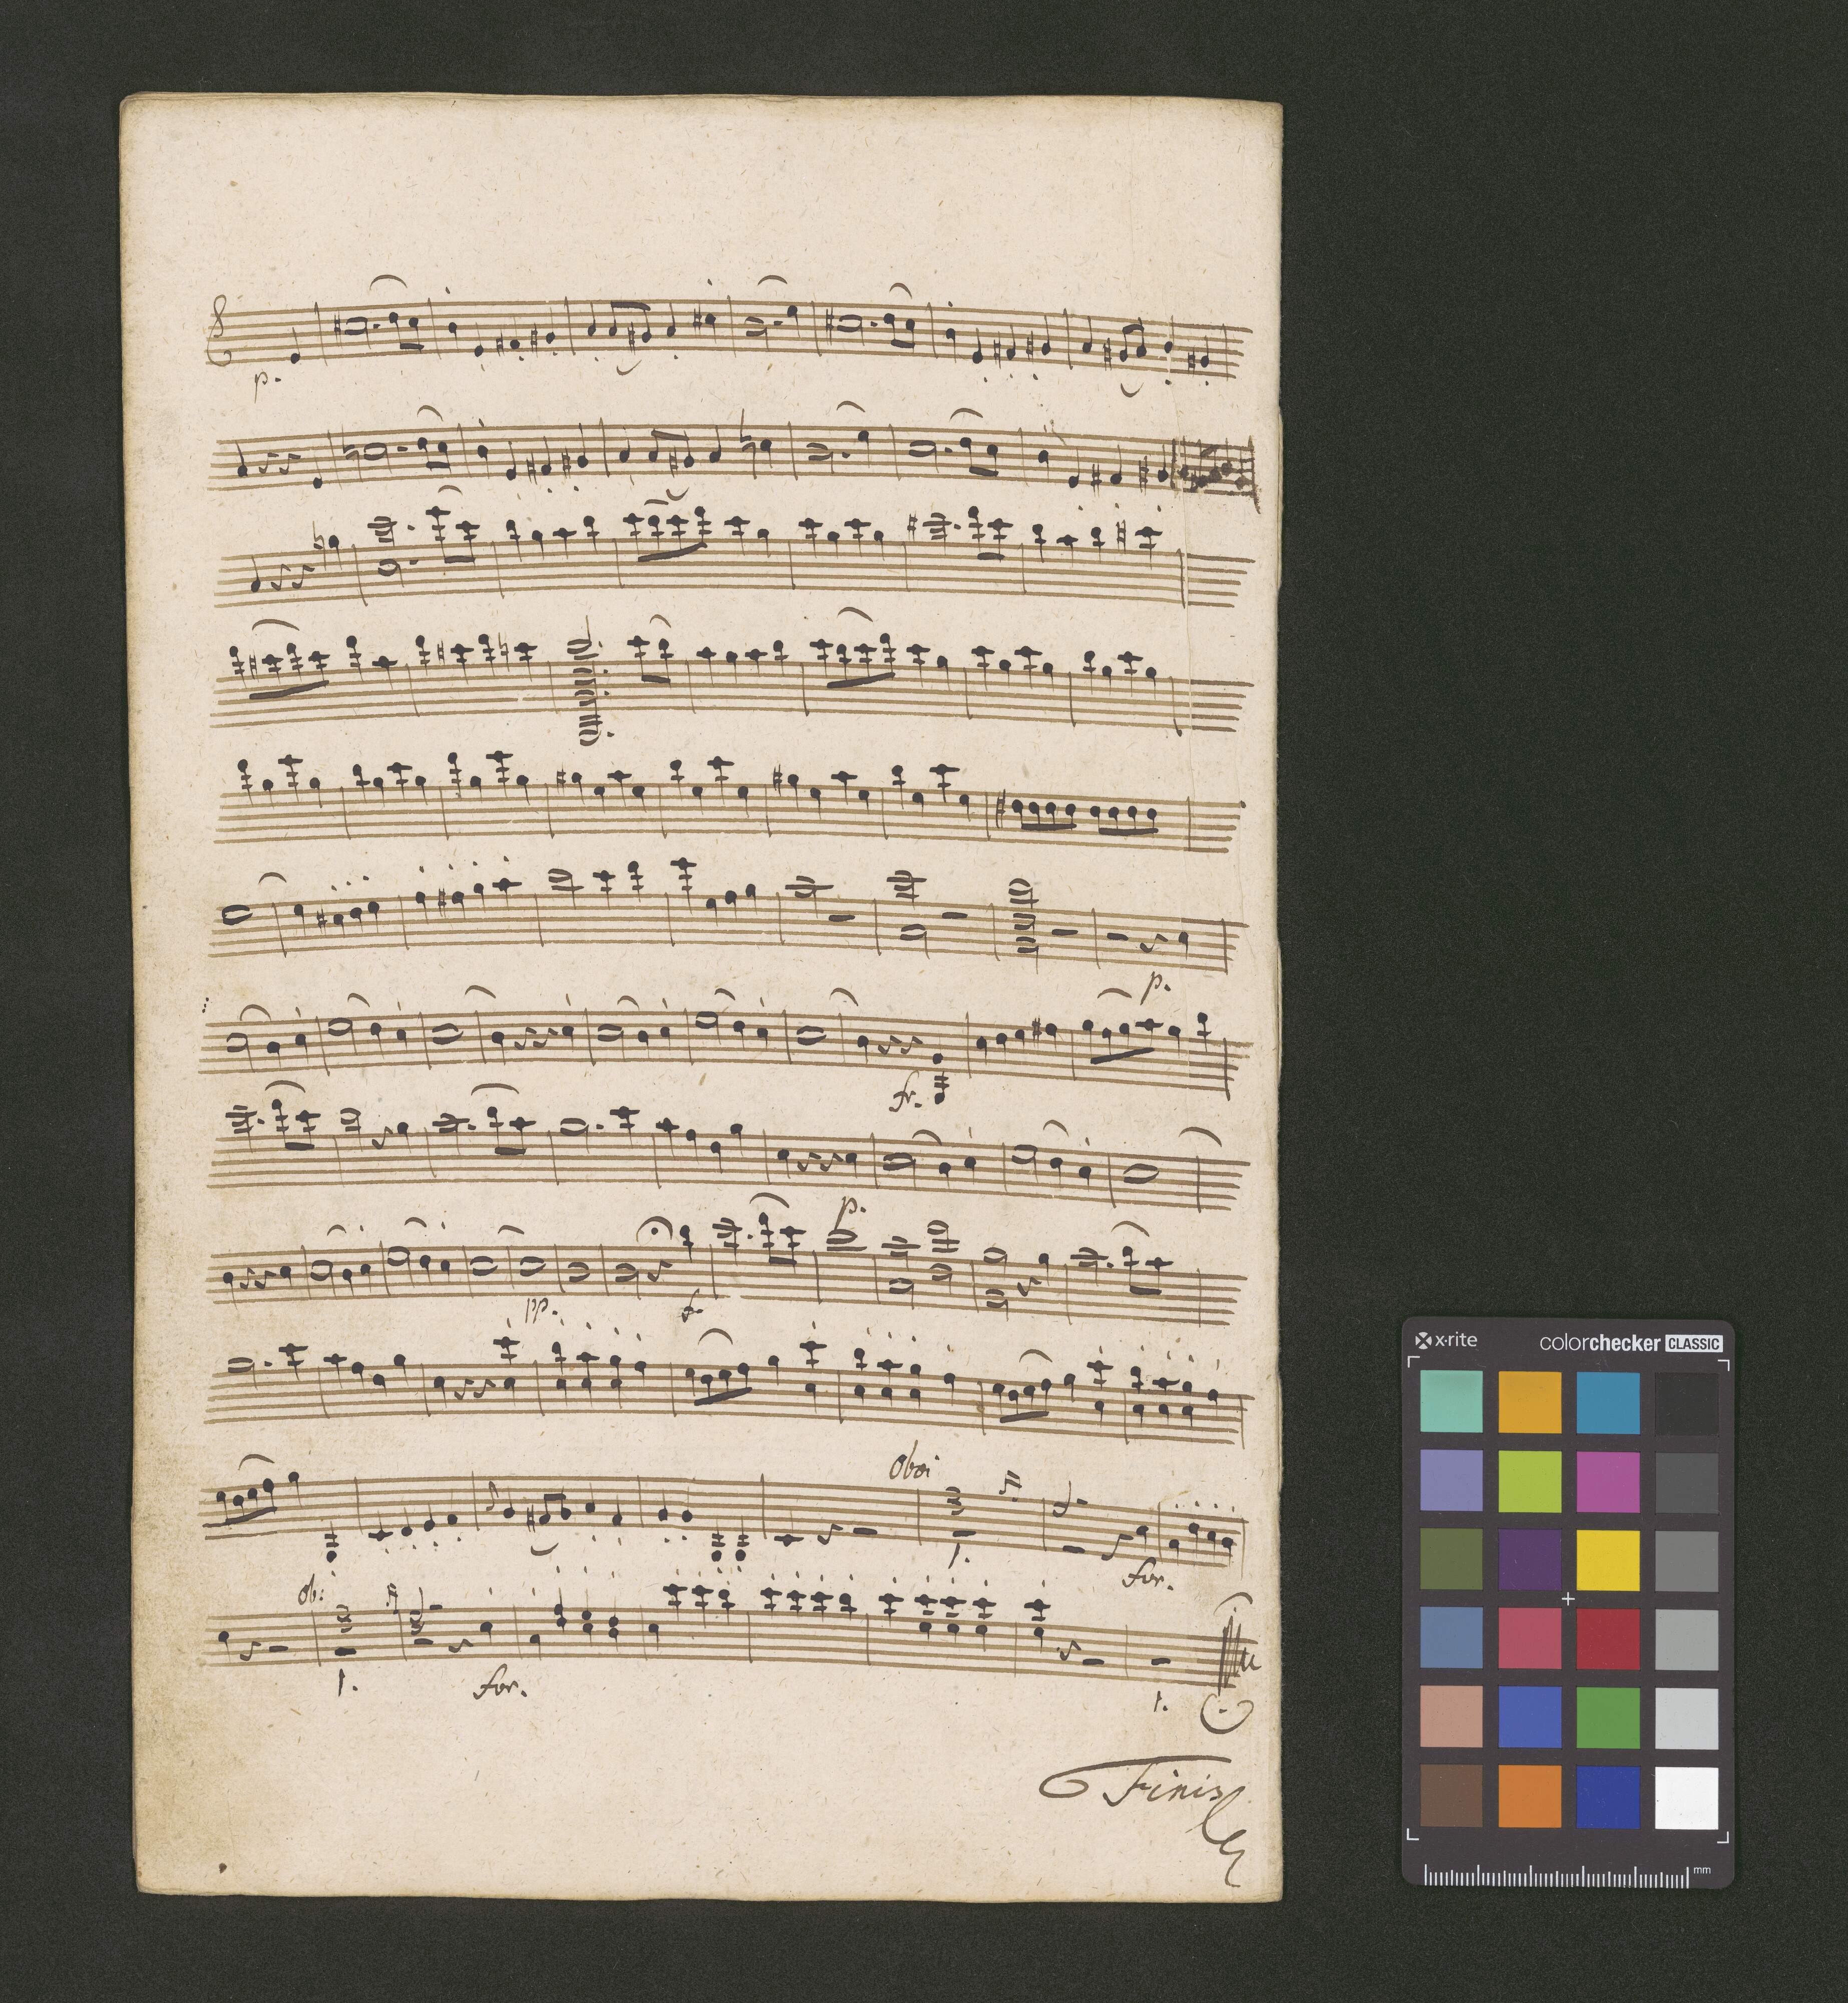 p.
p.
fr.
p.
pp.
f.
Oboi
1.
for.
ob:
1.
for.
1.
Finis
x·rite
colorchecker CLASSIC
mm